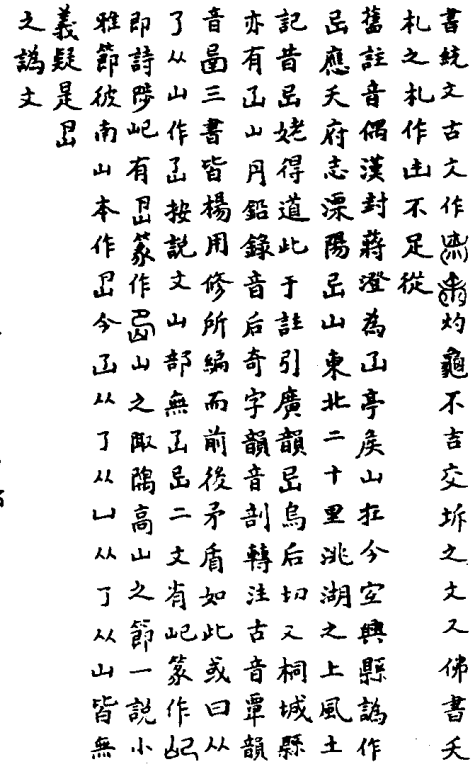 書統文古文作灼龜不吉交坼之文又佛書夭
札之札作不足從
舊註音偶漢封蔣澄為亭矦山在今宜興縣譌作
應天府志溧陽山東北二十里洮湖之上風土
記昔姥得道此于註引廣韻烏后切又桐城縣
亦有山丹鉛錄音后奇字韻音剖轉注古音覃韻
音啚三書皆楊用修所編而前後矛盾如此或曰从
了从山作按說文山部無二文有屺篆作
即詩陟屺有篆作山之陬隅高山之節一說小
雅節彼南山本作今从了从凵从了从山皆無
義疑是
之譌文